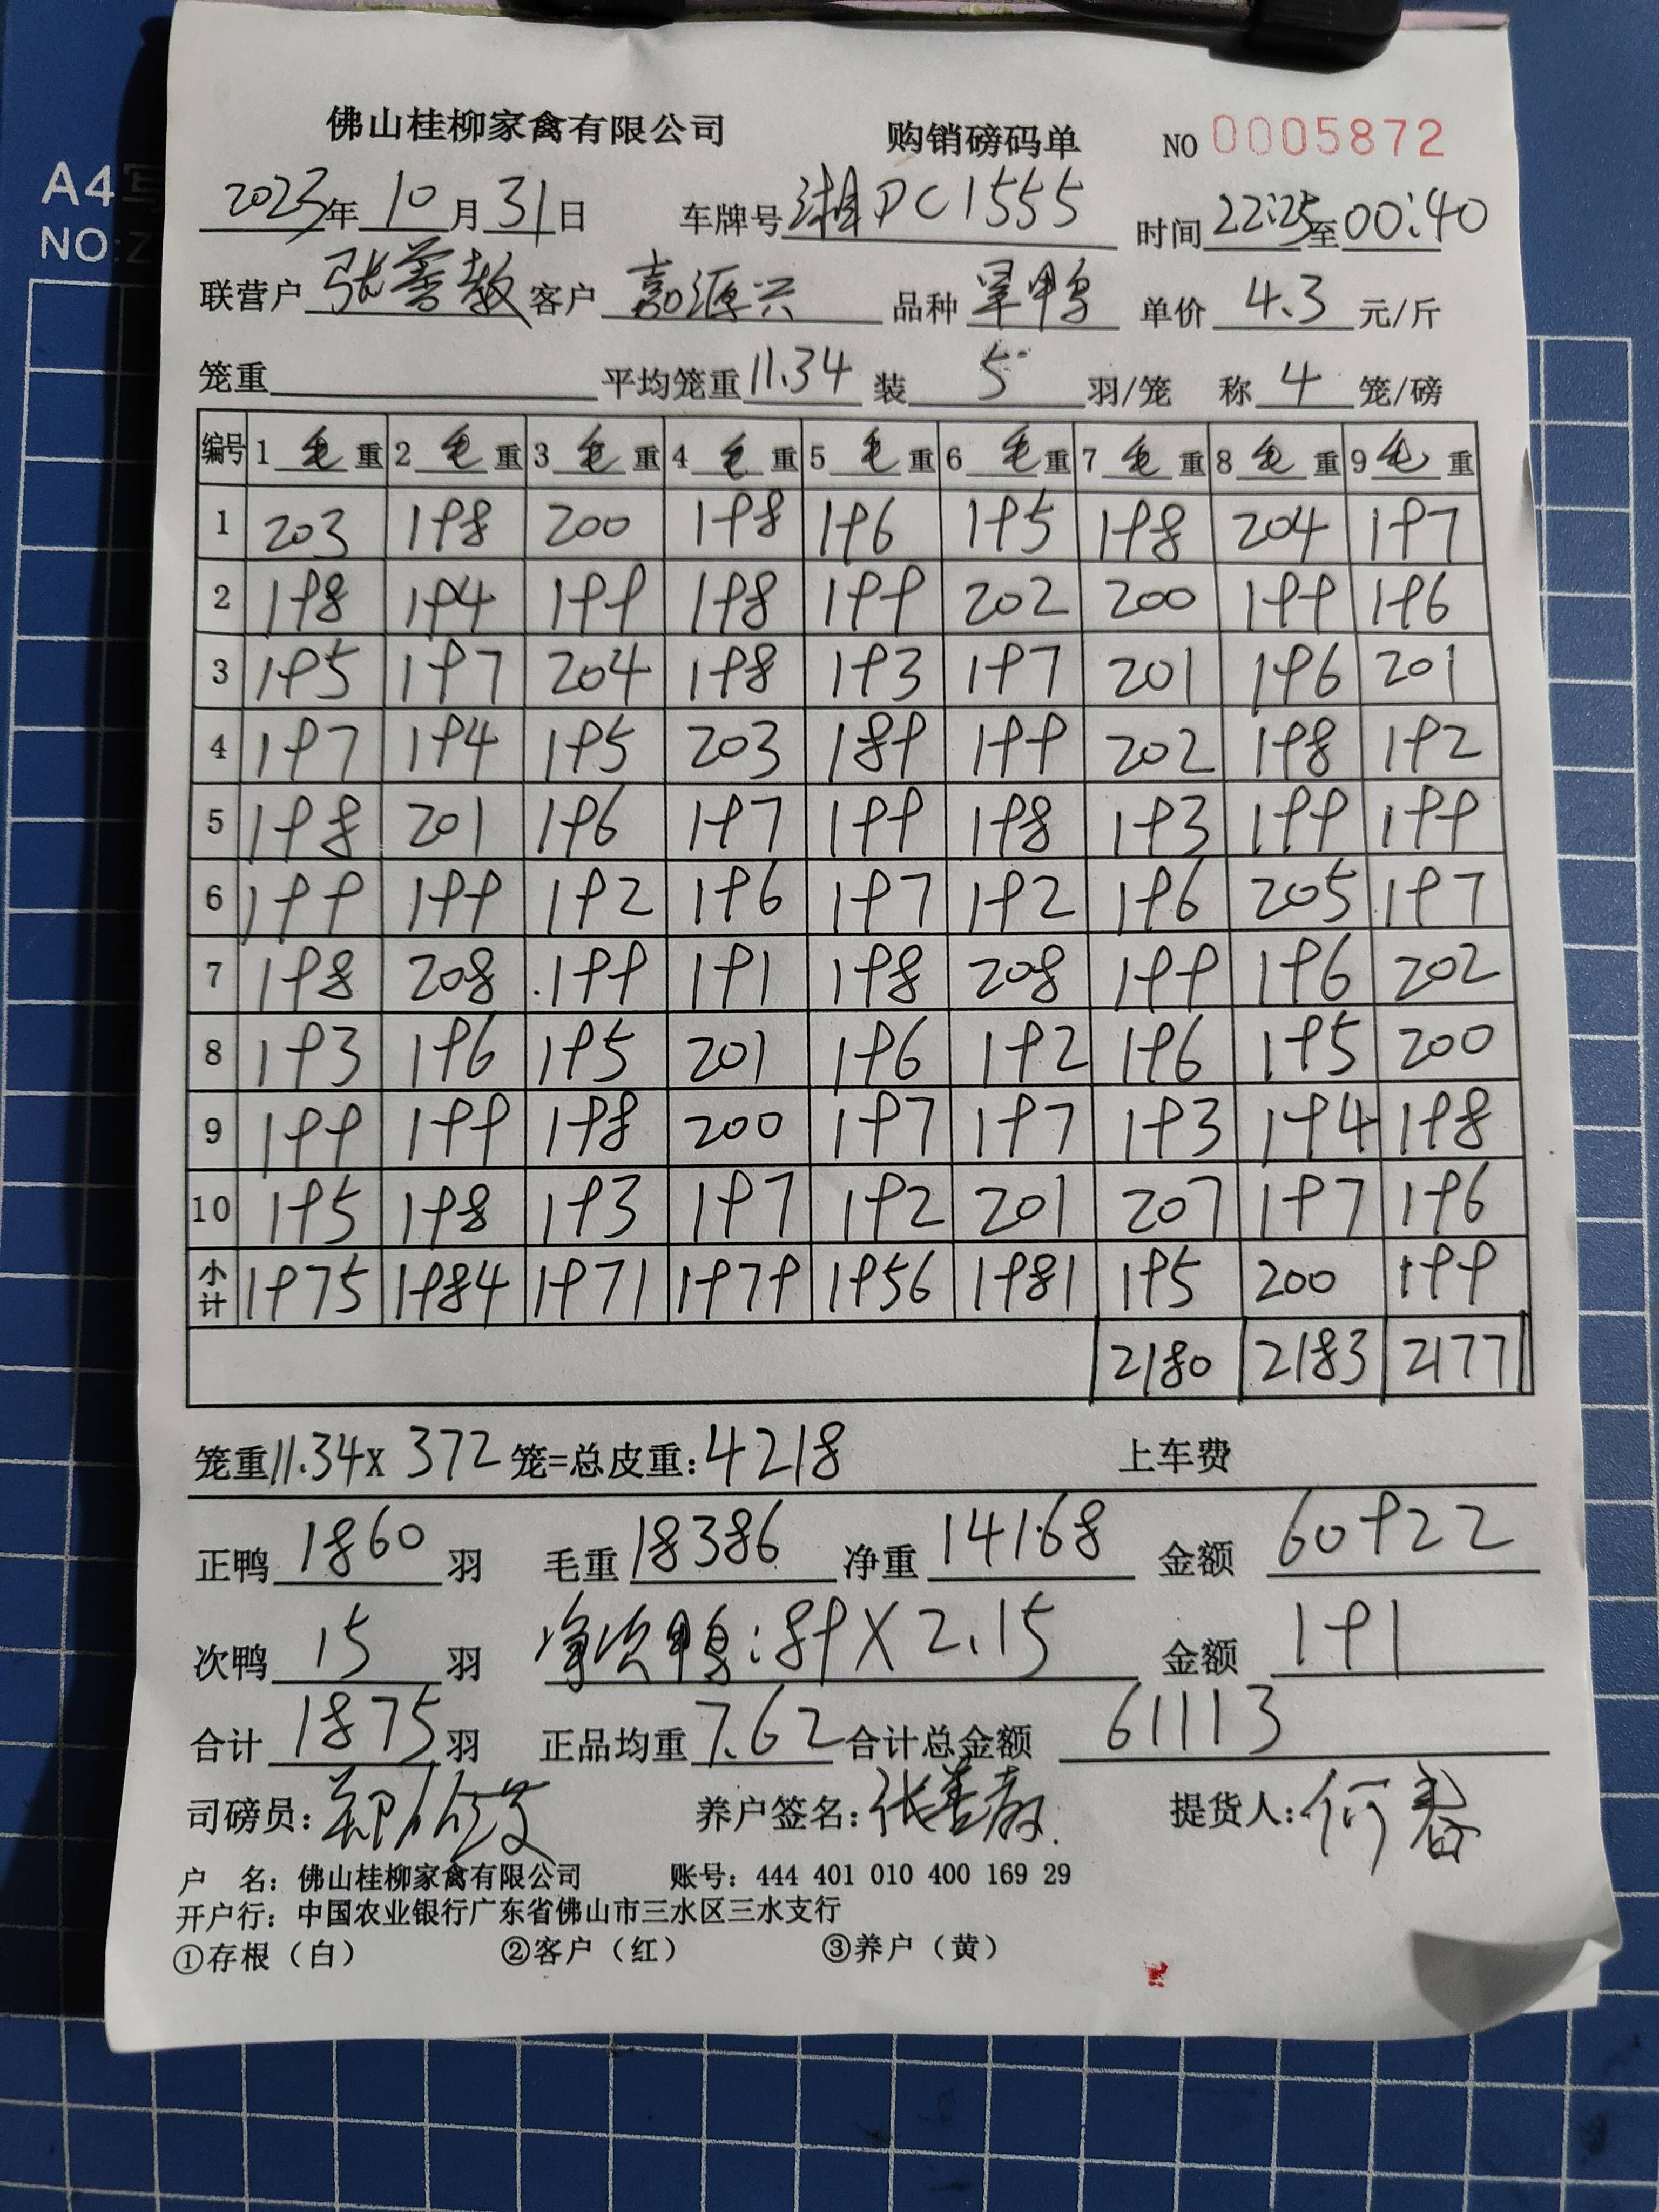 A4
NO:
佛山桂柳家禽有限公司 购销磅码单 NO 0005872
2023年10月31日 车牌号 湘PC1555 时间 22:25至00:40
联营户 张善教 客户 嘉源兴 品种 旱鸭 单价 4.3 元/斤
笼重 平均笼重 11.34 装 5 羽/笼 称 4 笼/磅
编号 1 毛 重 2 毛 重 3 毛 重 4 毛 重 5 毛 重 6 毛 重 7 毛 重 8 毛 重 9 毛 重
1 203 198 200 198 196 195 198 204 197
2 198 194 199 198 199 202 200 199 196
3 195 197 204 198 193 197 201 196 201
4 197 194 195 203 189 199 202 198 192
5 198 201 196 197 199 198 193 199 199
6 199 199 192 196 197 192 196 205 197
7 198 208 199 191 198 208 199 196 202
8 193 196 195 201 196 192 196 195 200
9 199 199 198 200 197 197 193 194 198
10 195 198 193 197 192 201 207 197 196
小计 1975 1984 1971 1979 1956 1981 195 200 199
2180 2183 2177
笼重 11.34 x 372 笼=总皮重: 4218 上车费
正鸭 1860 羽 毛重 18386 净重 14168 金额 60922
次鸭 15 羽 净次鸭: 89 X 2.15 金额 191
合计 1875 羽 正品均重 7.62 合计总金额 61113
司磅员: 养户签名: 张善教 提货人: 何春
户 名: 佛山桂柳家禽有限公司 账号: 444 401 010 400 169 29
开户行: 中国农业银行广东省佛山市三水区三水支行
①存根（白） ②客户（红） ③养户（黄）